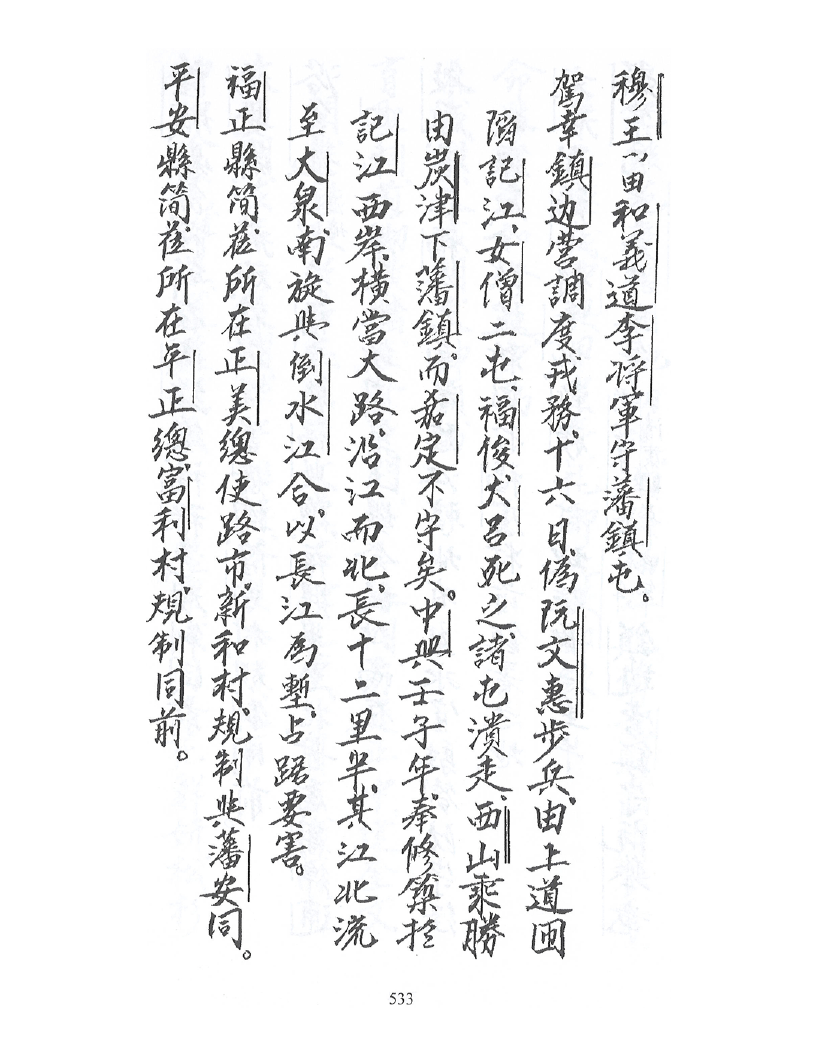 穆王以由和義道李将軍守藩鎮屯。
駕幸鎮边营調度戎務、十六日、偽阮文惠步兵、由上道闽
隔記江、女僧二屯、福俊、犬呂死之、諸屯潰走、西山乘勝
由炭津下藩鎮。而嘉定不守矣。中興壬子年、奉修築扵
記江西岸、橫當大路、沿江而北、長十二里半、其江北流
至大泉、南旋與倒水江合。以長江為塹。占踞要害。
福正縣简蒞所在正美總使路市、新和村、規制與藩安同。
平安縣简蒞所在年正總、富利村、規制同前。
533